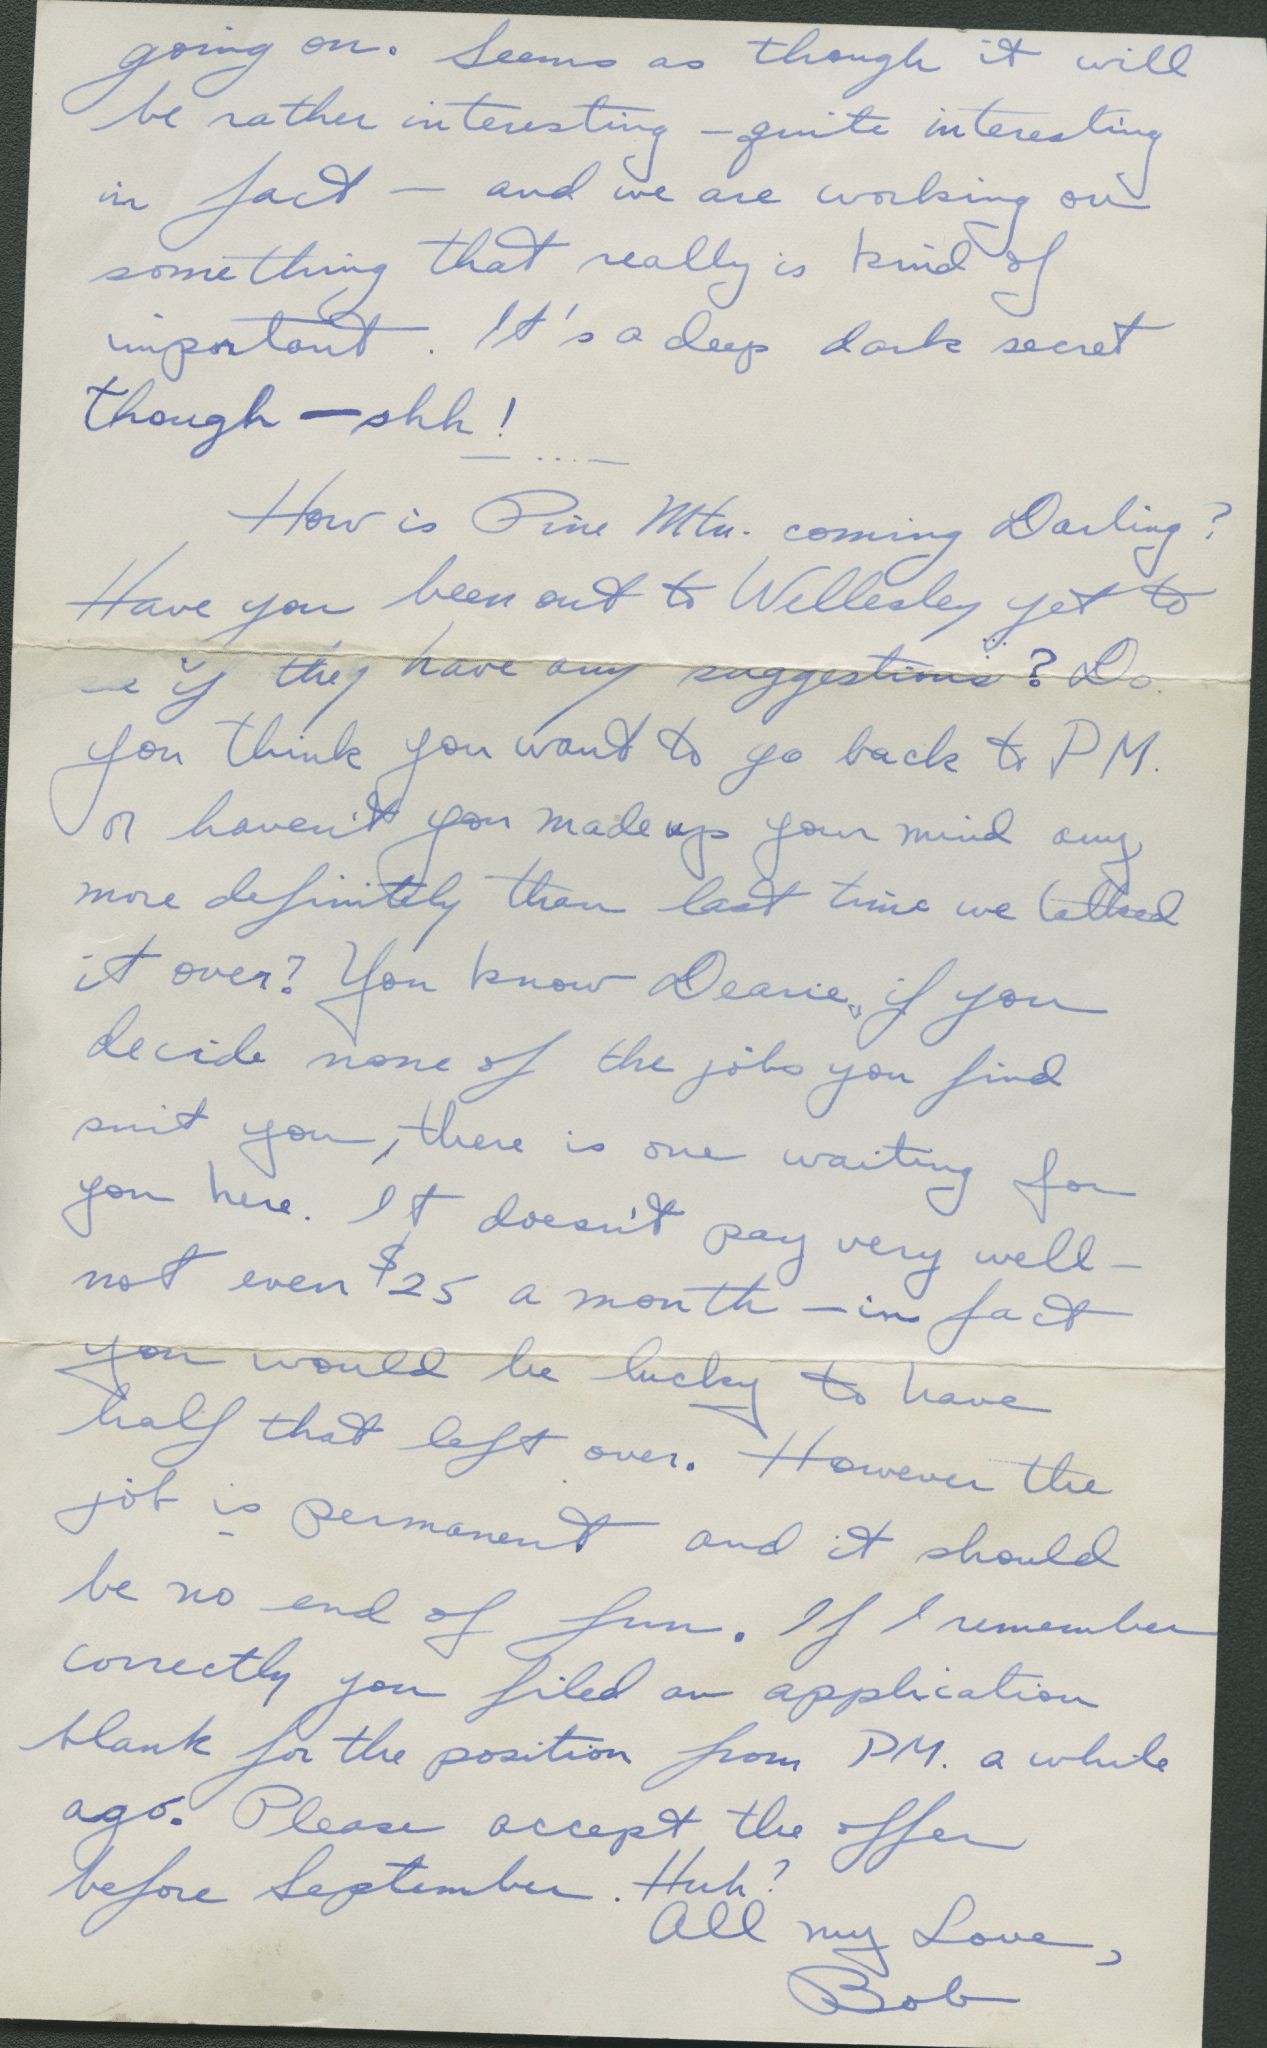 going on. Seems as though it will
be rather interesting – quite interesting
in fact – and we are working on
something that really is kind of
important. It's a deep dark secret
though – shh!
— ... —
How is Pine Mtn. coming Darling?
Have you been out to Wellesley yet to
see if they have any suggestions? Do
you think you want to go back to P.M.
or haven't you made up your mind any
more definitely than last time we talked
it over? You know Dearie, if you
decide none of the jobs you find
suit you, there is one waiting for
you here. It doesn't pay very well –
not even $25 a month – in fact
you would be lucky to have
half that left over. However the
job is permanent and it should
be no end of fun. If I remember
correctly you filed an application
blank for the position from P.M. a while
ago. Please accept the offer
before September. Huh?
All my Love,
Bob